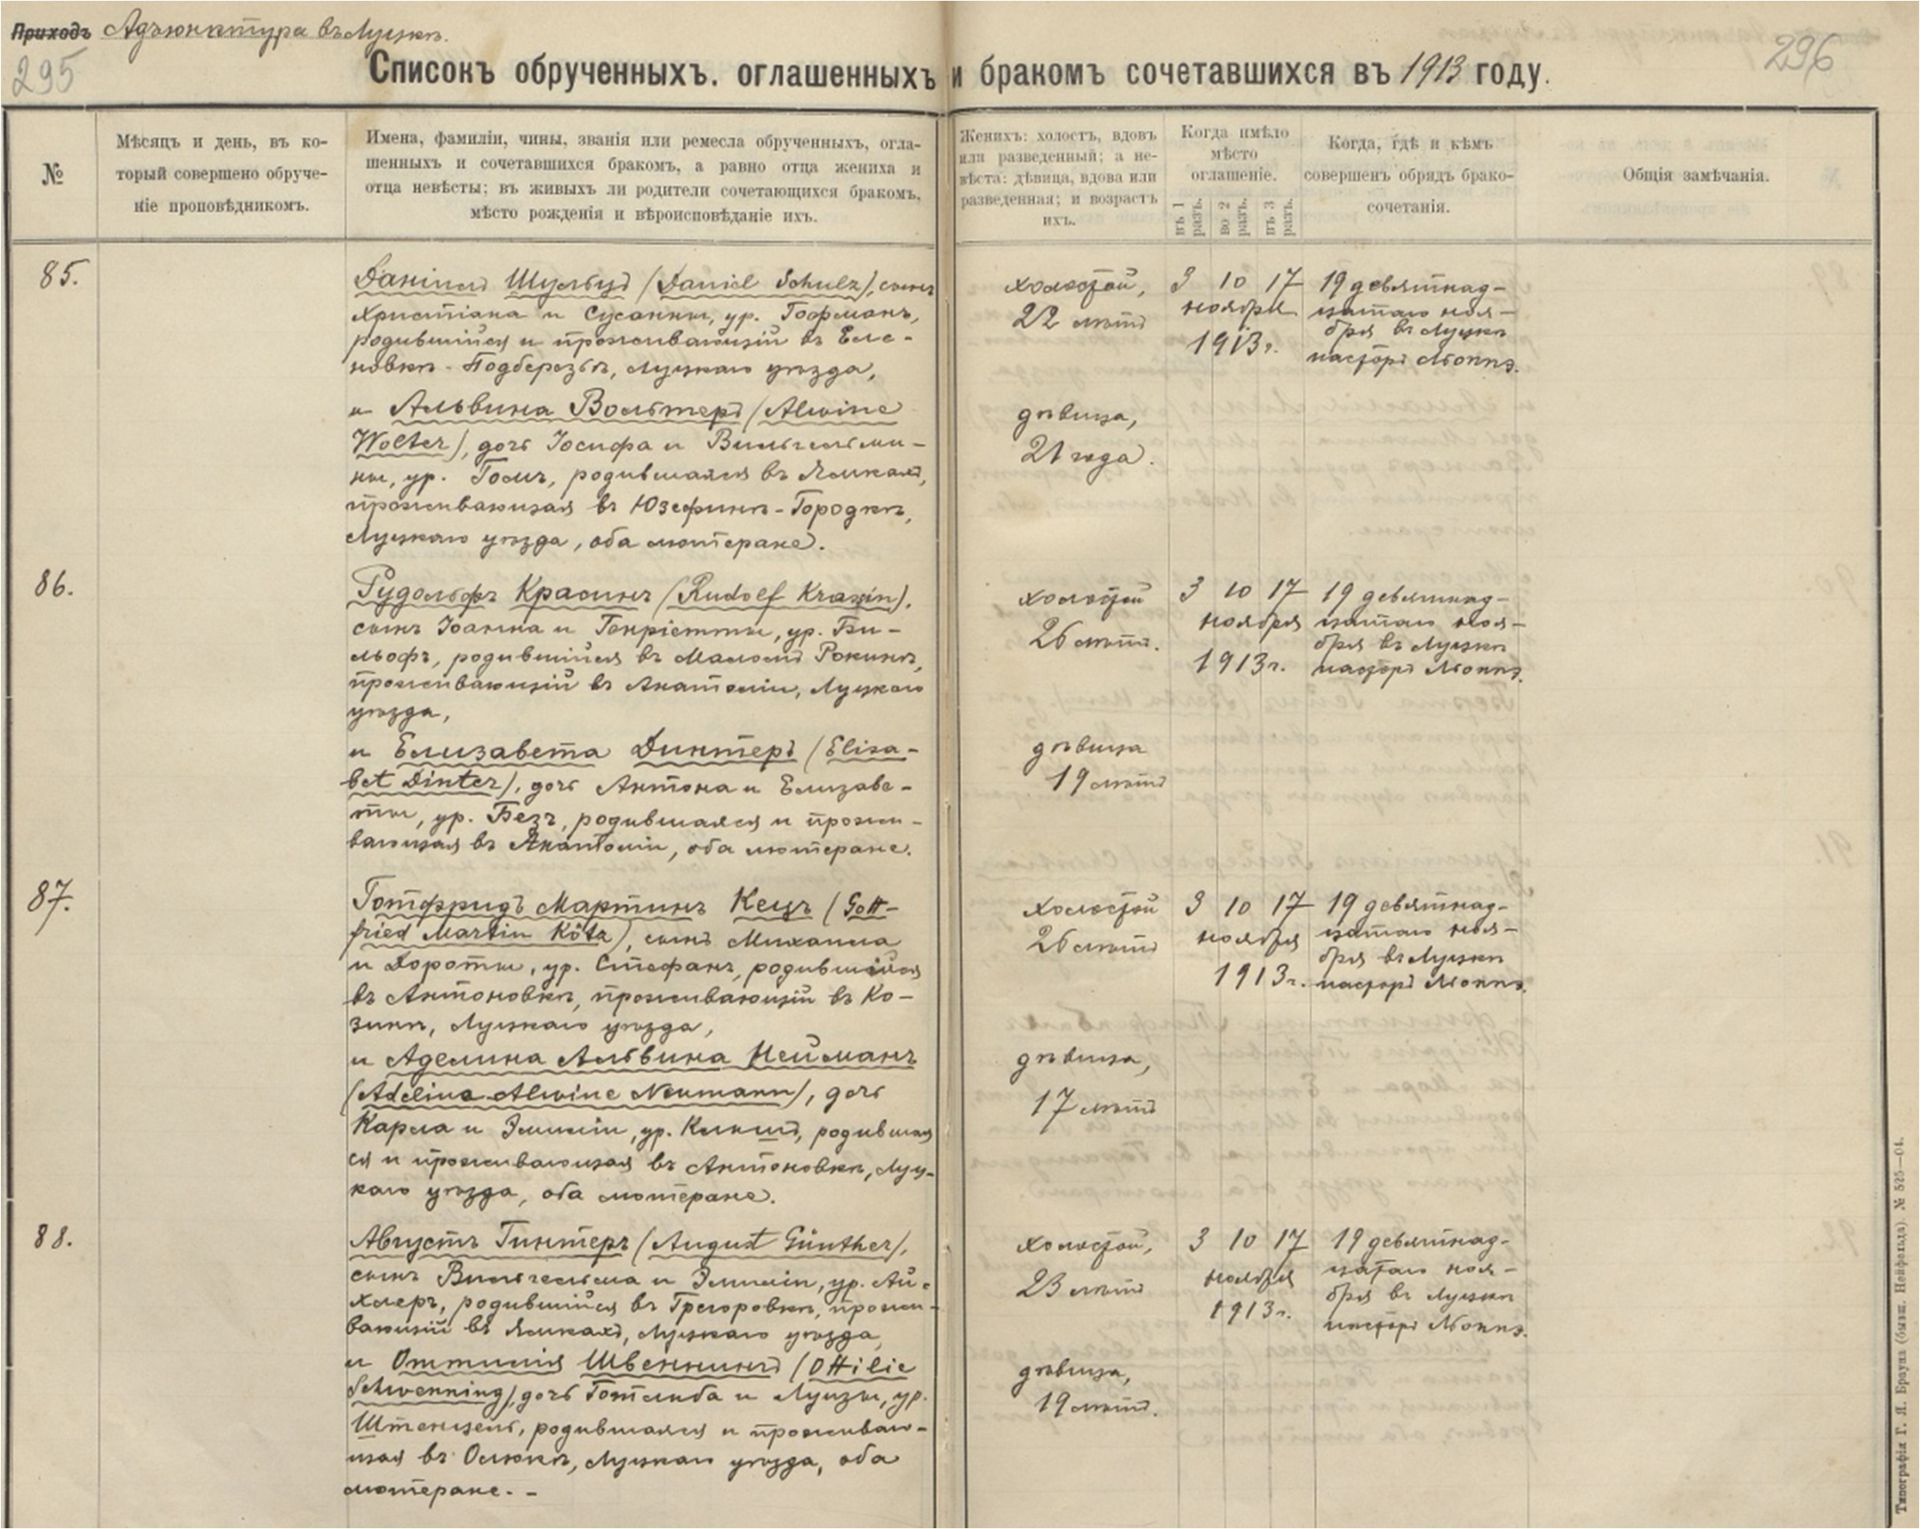 Приходъ Адъюнктура въ Луцкѣ.
295
296
Списокъ обрученныхъ. оглашенныхъ и бракомъ сочетавшихся въ 1913 году.
№
Мѣсяцъ и день, въ ко-
торый совершено обруче-
ніе проповѣдникомъ.
Имена, фамиліи, чины, званія или ремесла обрученныхъ, огла-
шенныхъ и сочетавшихся бракомъ, а равно отца жениха и
отца невѣсты; въ живыхъ ли родители сочетающихся бракомъ,
мѣсто рожденія и вѣроисповѣданіе ихъ.
Женихъ: холостъ, вдовъ
или разведенный; а не-
вѣста: дѣвица, вдова или
разведенная; и возрастъ
ихъ.
Когда имѣло
мѣсто
оглашеніе.
въ 1 разъ.
во 2 разъ.
въ 3 разъ.
Когда, гдѣ и кѣмъ
совершенъ обрядъ брако-
сочетанія.
Общія замѣчанія.
85.
Даніилъ Шульцъ (Daniel Schulz), сынъ
Христіана и Сусанны, ур. Гофманъ,
родившійся и проживающій въ Еле-
новкѣ-Подберезьѣ, Луцкаго уѣзда,
и Альвина Вольтеръ (Alwine
Wolter), дочь Іосифа и Вильгельми-
ны, ур. Гольц, родившаяся въ Ямкахъ,
проживающая въ Юзефинѣ-Городкѣ,
Луцкаго уѣзда, оба лютеране.
холостой,
22 лѣтъ
дѣвица,
21 года.
3 10 17
ноября
1913 г.
19 девятнад-
цатаго ноя-
бря въ Луцкѣ
пасторъ Лоппэ.
86.
Рудольфъ Красинъ (Rudolf Krassin),
сынъ Іоанна и Генріетты, ур. Би-
льофъ, родившійся въ Маломъ Рокинѣ,
проживающій въ Анатоліи, Луцкаго
уѣзда,
и Елизавета Динтеръ (Elisa-
bet Dinter), дочь Антона и Елизаве-
ты, ур. Безъ, родившаяся и прожи-
вающая въ Анатоліи, оба лютеране.
холостой
26 лѣтъ.
дѣвица
19 лѣтъ
3 10 17
ноября
1913 г.
19 девятнад-
цатаго ноя-
бря въ Луцкѣ
пасторъ Лоппэ.
87.
Готфридъ Мартинъ Кецъ (Gott-
fried Martin Kötz), сынъ Михаила
и Дороты, ур. Стефанъ, родившійся
въ Антоновкѣ, проживающій въ Ко-
зинѣ, Луцкаго уѣзда,
и Аделина Альвина Нейманъ
(Adeline Alwine Neumann), дочь
Карла и Эмиліи, ур. Клиншъ, родившая
ся и проживающая въ Антоновкѣ, Луц-
каго уѣзда, оба лютеране.
Холостой
26 лѣтъ
дѣвица,
17 лѣтъ
3 10 17
ноября
1913 г.
19 девятнад-
цатаго ноя-
бря въ Луцкѣ
пасторъ Лоппэ.
88.
Августъ Гинтеръ (August Günther),
сынъ Вильгельма и Эмиліи, ур. Ай-
хлеръ, родившійся въ Грегоровкѣ, прожи-
вающій въ Ямкахъ, Луцкаго уѣзда
и Оттилія Швеннингъ (Ottilie
Schwenning), дочь Готлиба и Луизы, ур.
Штенцель, родившаяся и прожива-
щая въ Осіокѣ, Луцкаго уѣзда, оба
лютеране. -
холостой,
23 лѣтъ
дѣвица,
19 лѣтъ.
3 10 17
ноября
1913 г.
19 девятнад-
цатаго ноя-
бря въ Луцкѣ
пасторъ Лоппэ.
Типографія Г. Л. Брауна (бывш. Нейфельда). № 525—04.